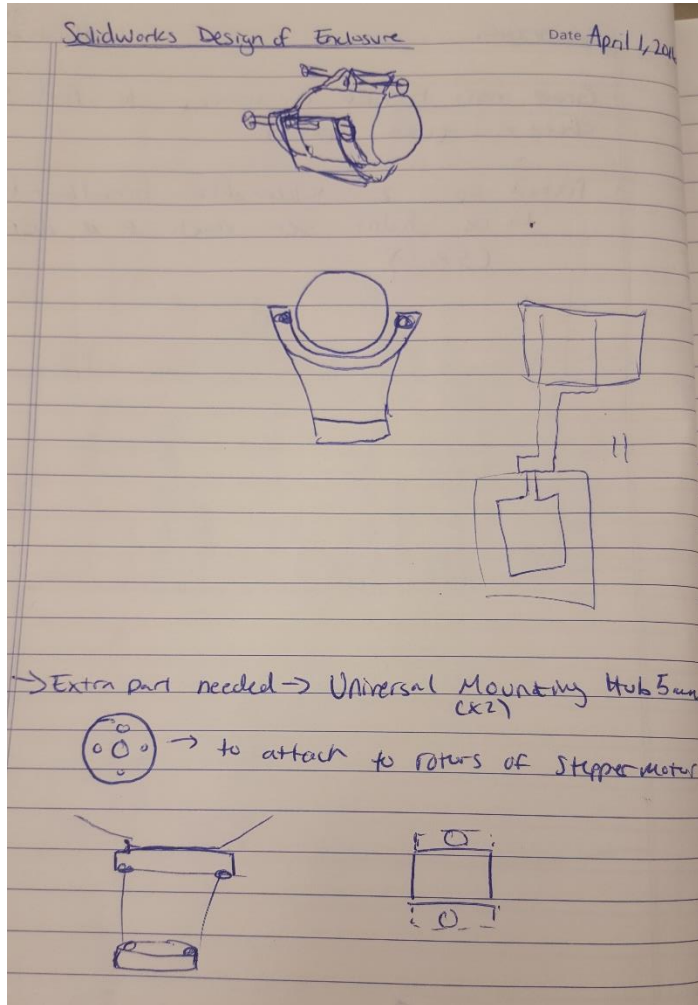 Solidworks Design of Enclosure
Date April 1,
→ Extra part needed → Universal Mounting Hub 5mm
(x2)
→ to attach to rotors of stepper motor